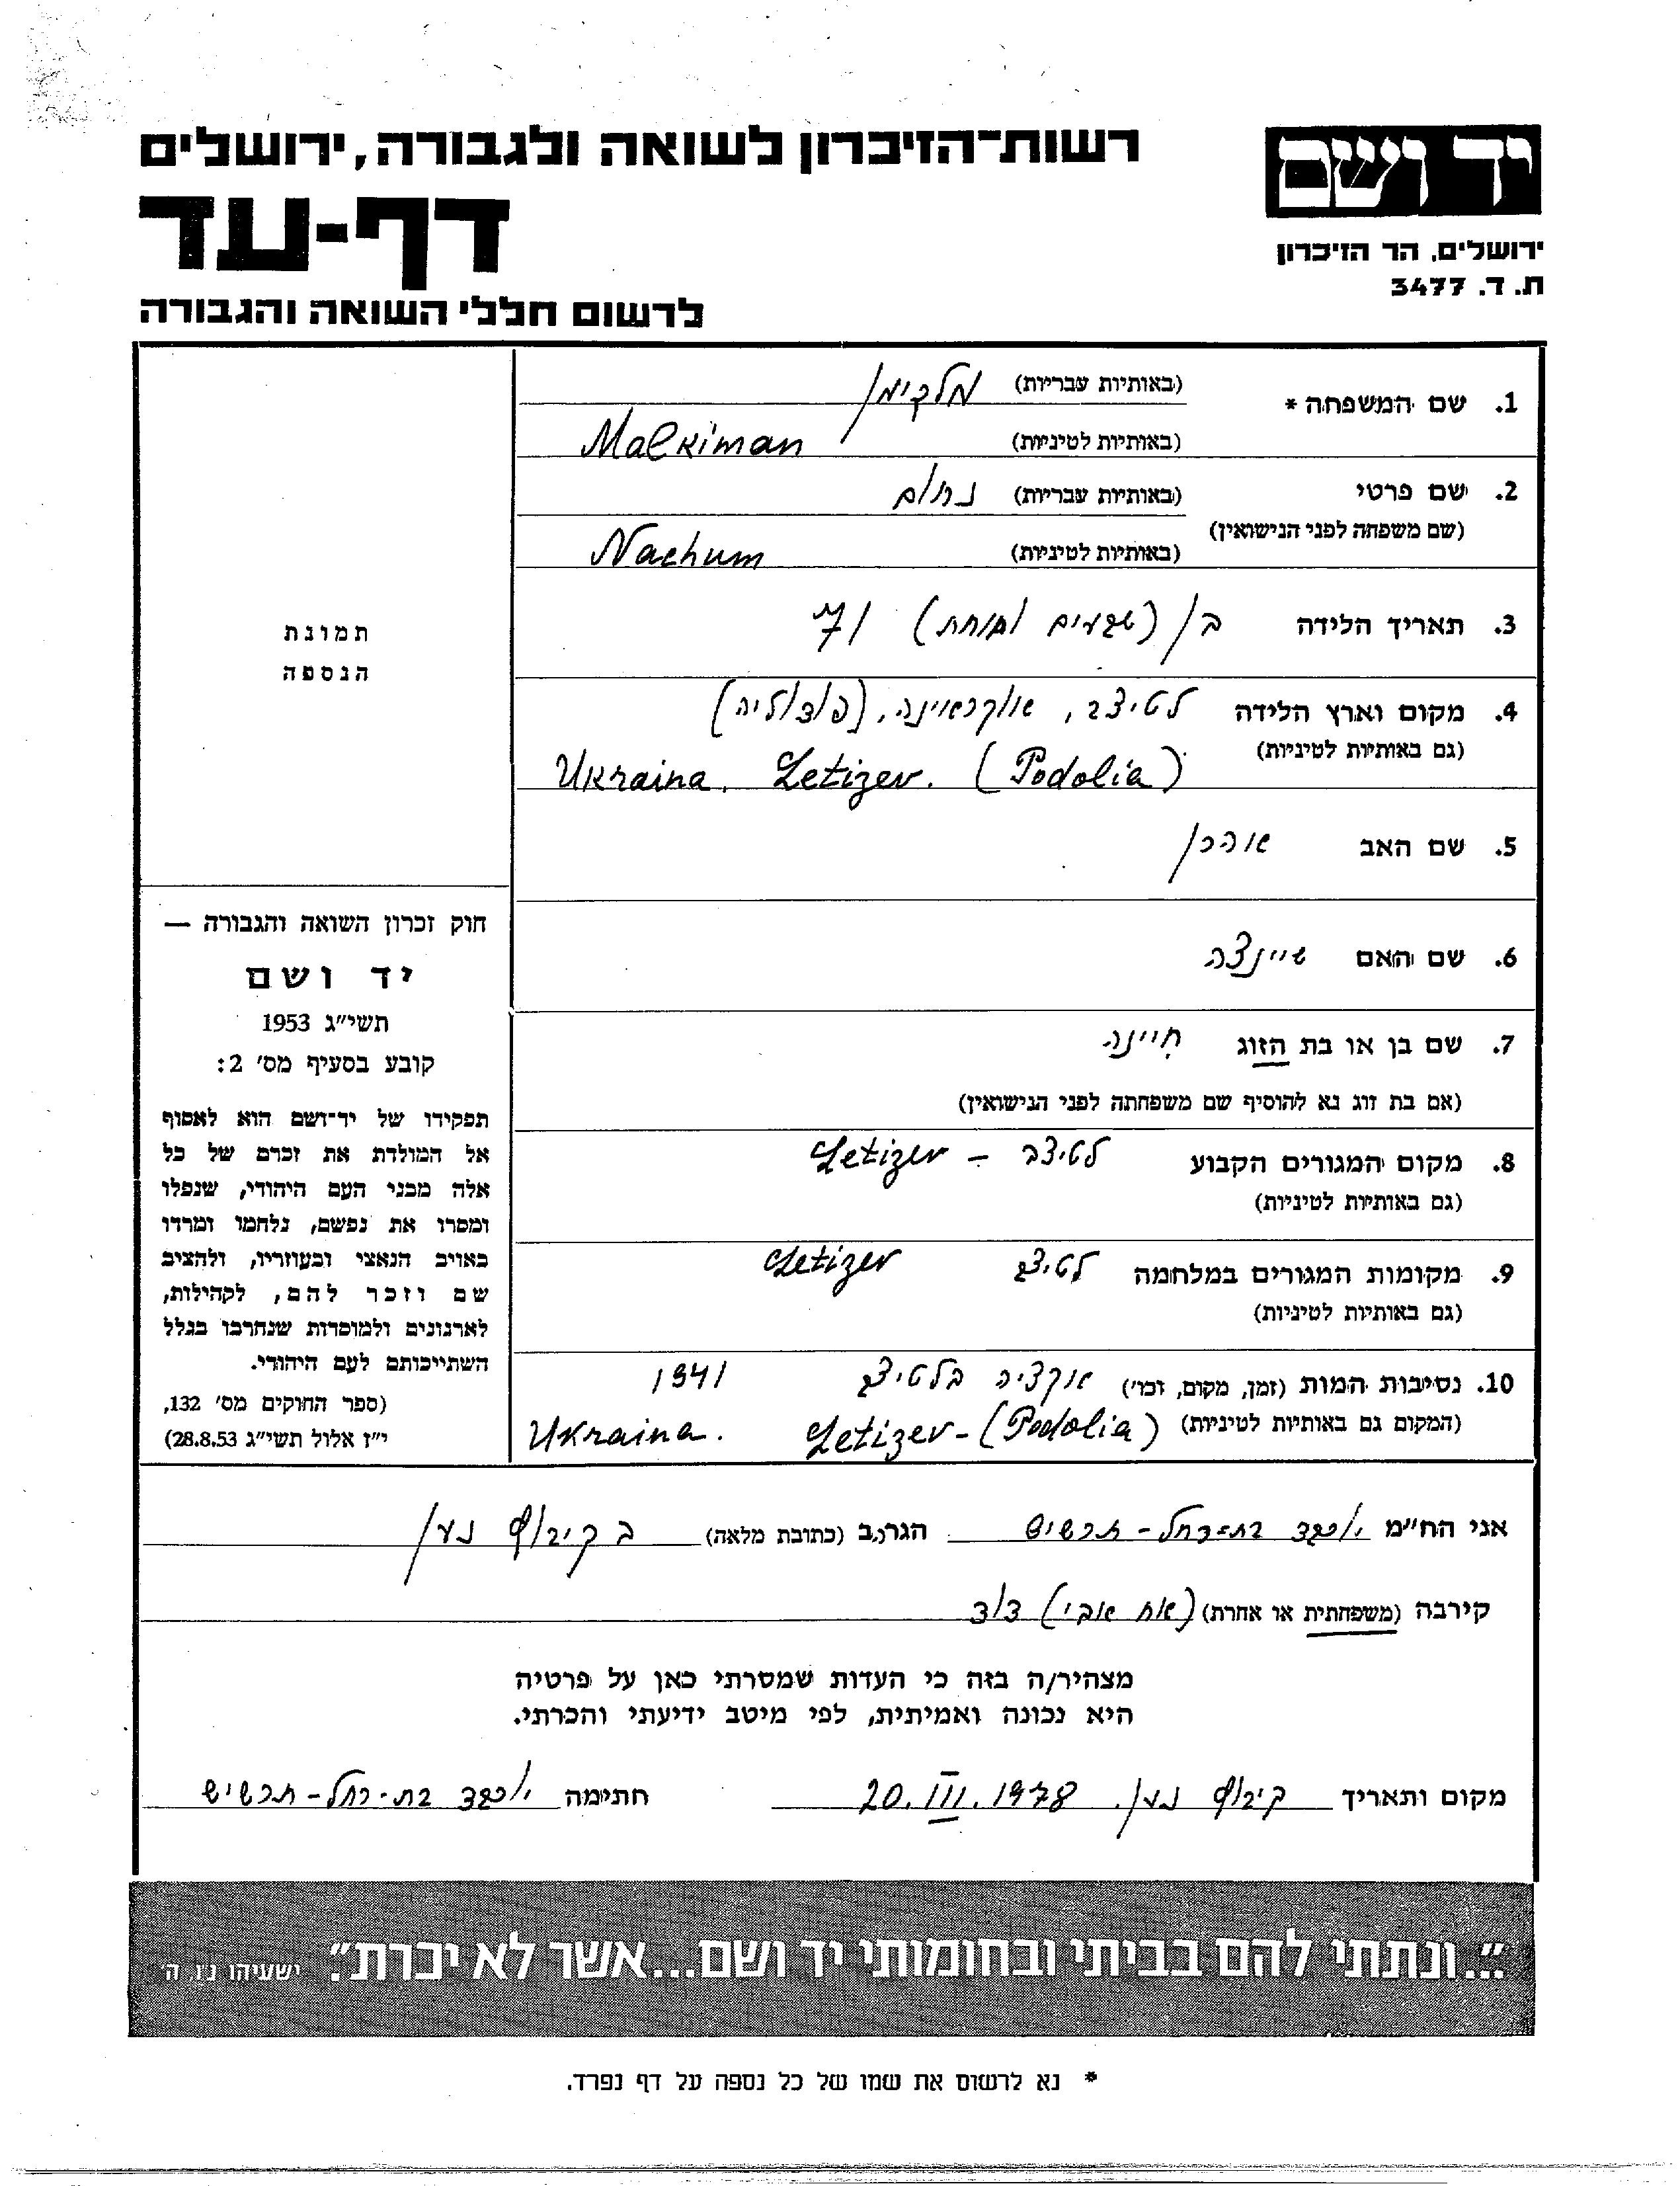 רשות־הזיכרון לשואה ולגבורה, ירושלים
דף-עד
לרשום חללי השואה והגבורה
יד ושם
ירושלים, הר הזיכרון
ת. ד. 3477
1. שם המשפחה * (באותיות עבריות) מלקימן
(באותיות לטיניות) Malkiman
2. שם פרטי (באותיות עבריות) נחום
(שם משפחה לפני הנישואין)
(באותיות לטיניות) Nachum
3. תאריך הלידה בן (שבעים ואחת) 71
4. מקום וארץ הלידה לטיצב, אוקראינה, (פודוליה)
(גם באותיות לטיניות) Ukraina. Letizev. (Podolia)
5. שם האב אהרן
6. שם האם שיינצה
7. שם בן או בת הזוג חיינה
(אם בת זוג נא להוסיף שם משפחתה לפני הנישואין)
8. מקום המגורים הקבוע לטיצב - Letizev
(גם באותיות לטיניות)
9. מקומות המגורים במלחמה לטיצב Letizev
(גם באותיות לטיניות)
10. נסיבות המות (זמן, מקום, וכו') אקציה בלטיצב 1941
(המקום גם באותיות לטיניות) Letizev - (Podolia) Ukraina.
תמונת
הנספה
חוק זכרון השואה והגבורה —
יד ושם
תשי"ג 1953
קובע בסעיף מס' 2:
תפקידו של יד־ושם הוא לאסוף
אל המולדת את זכרם של כל
אלה מבני העם היהודי, שנפלו
ומסרו את נפשם, נלחמו ומרדו
באויב הנאצי ובעוזריו, ולהציב
שם וזכר להם, לקהילות,
לארגונים ולמוסדות שנחרבו בגלל
השתייכותם לעם היהודי.
(ספר החוקים מס' 132,
י"ז אלול תשי"ג 28.8.53)
אני הח"מ יוכבד בת-רחל - תרשיש הגר/ב (כתובת מלאה) בקיבוץ נען
קירבה (משפחתית או אחרת) (אח אבי) דוד
מצהיר/ה בזה כי העדות שמסרתי כאן על פרטיה
היא נכונה ואמיתית, לפי מיטב ידיעתי והכרתי.
מקום ותאריך קיבוץ נען. 20.III.1978 חתימה יוכבד בת-רחל - תרשיש
"...ונתתי להם בביתי ובחומותי יד ושם...אשר לא יכרת". ישעיהו נ"ו, ה'
* נא לרשום את שמו של כל נספה על דף נפרד.